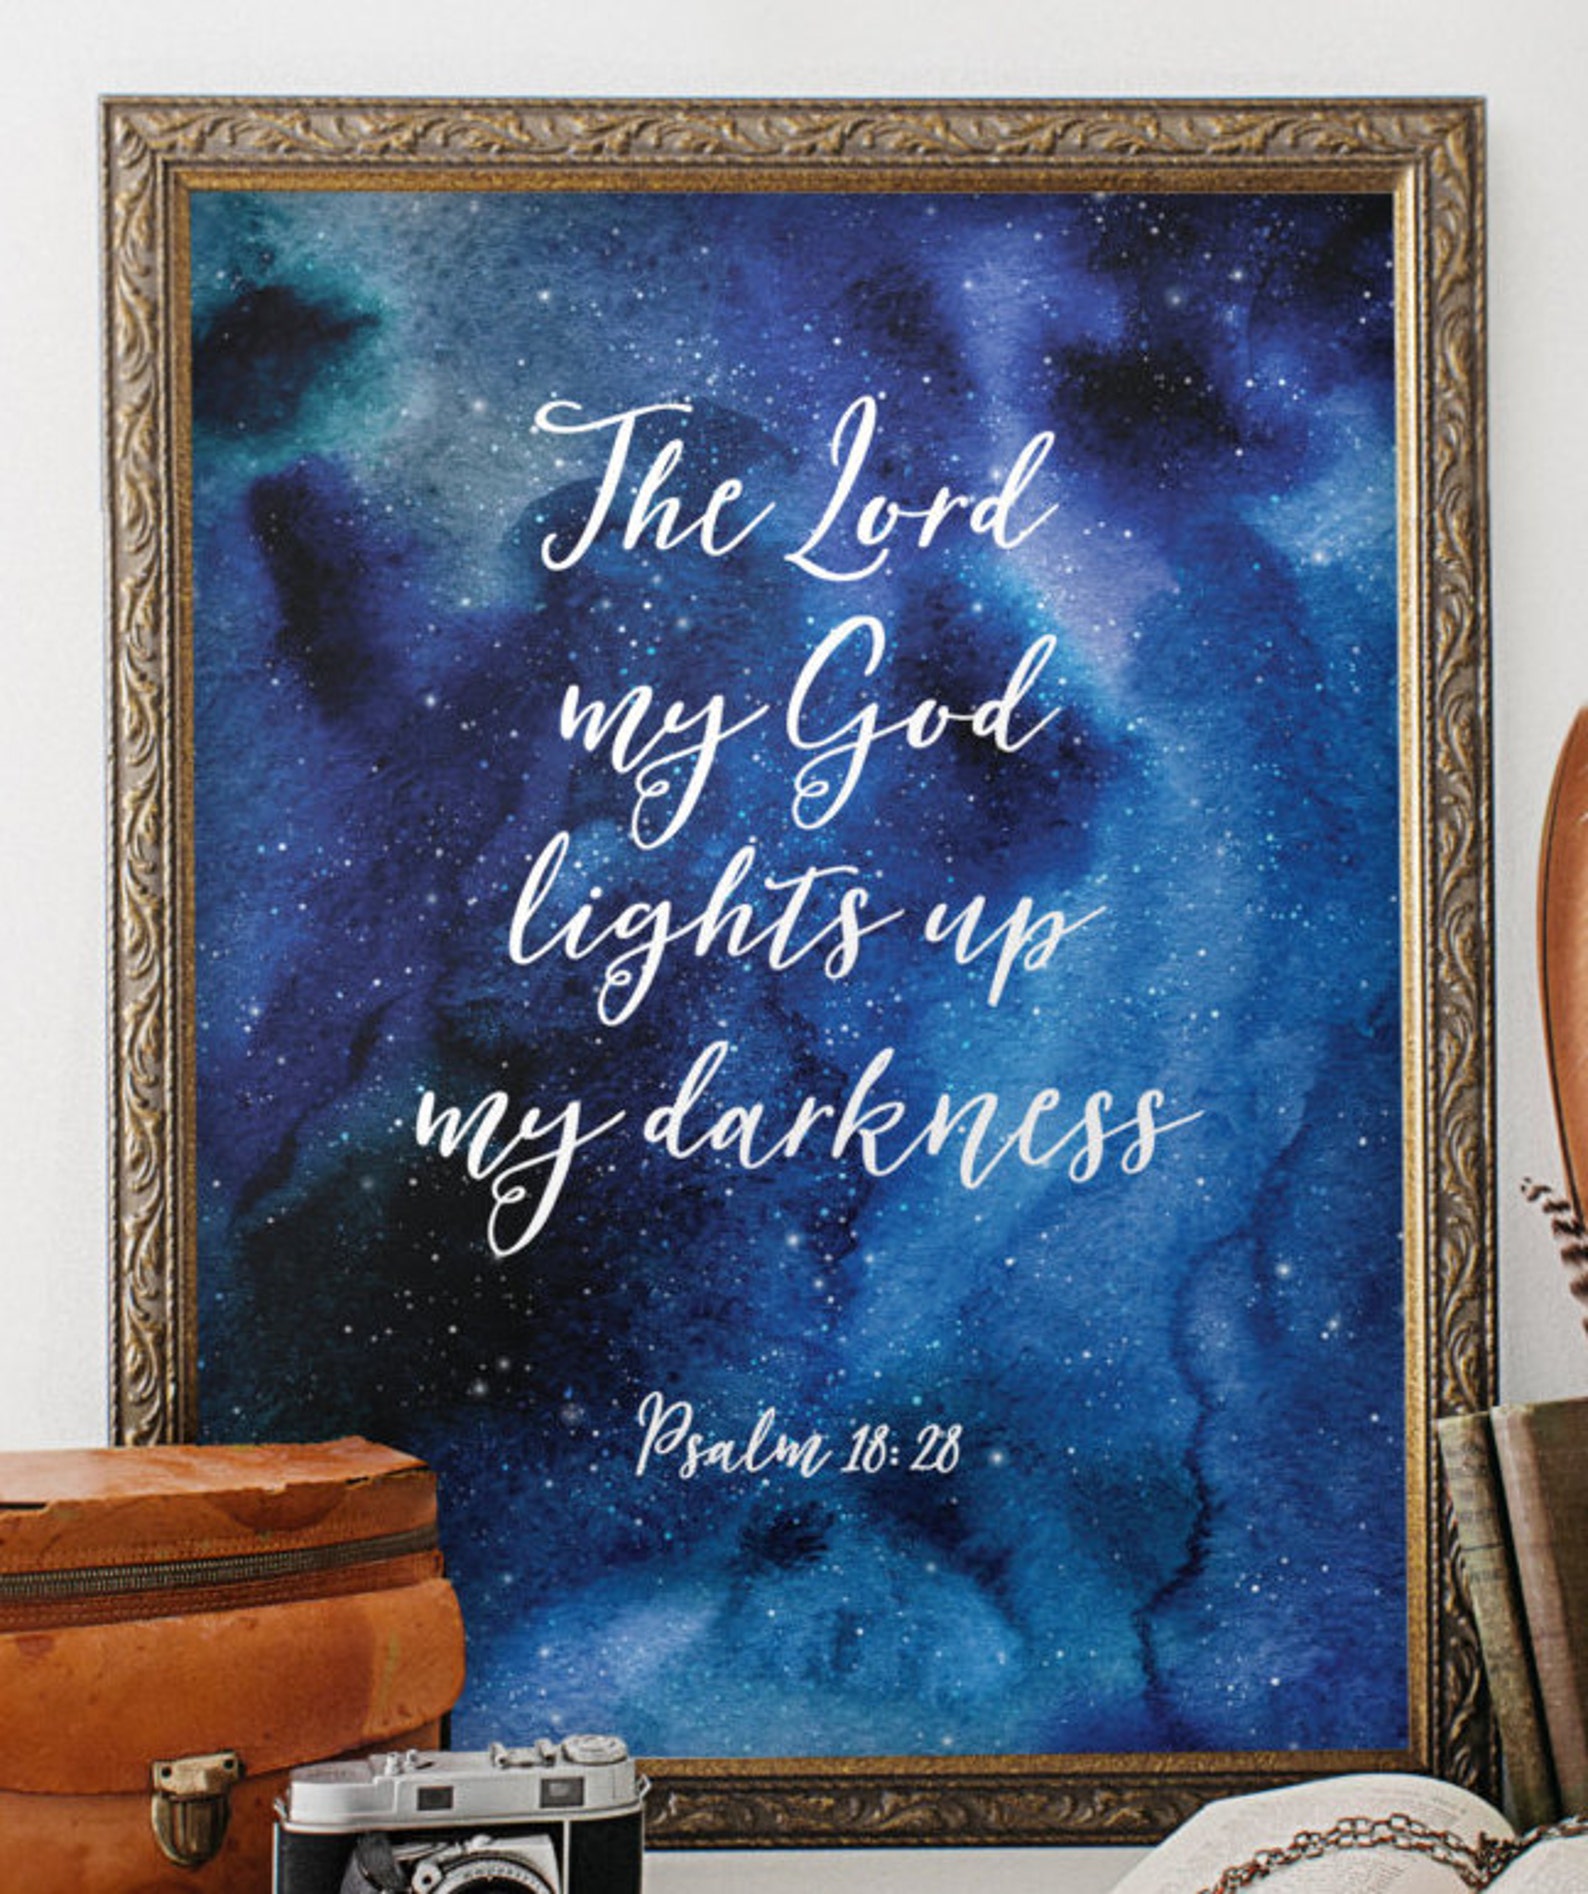 The Lord
my God
lights up
my darkness
Psalm 18: 28